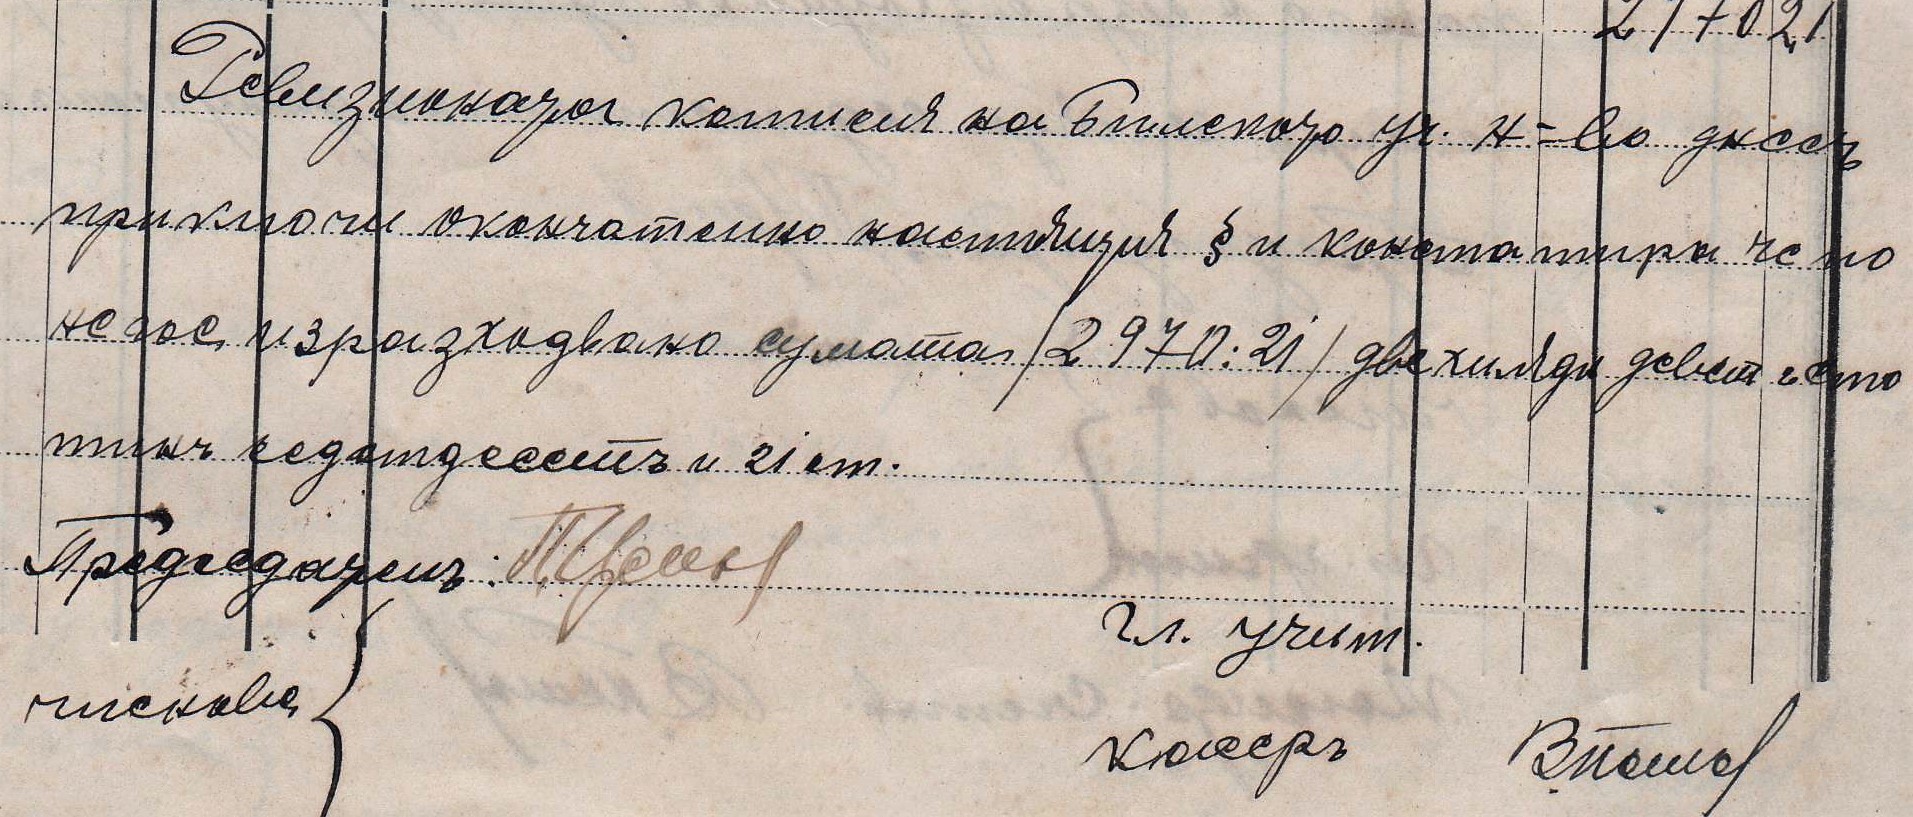 297021
Ревизионата комисия на Билското уч. н-во днесъ
приключи окончателно настоящия § и констатира че по
него е изразходвано сумата /2970:21/ две хиляди деветьсто
тинъ седемдесеть и 21 ст.
Председатель:
членове
Гл. учит.
касеръ